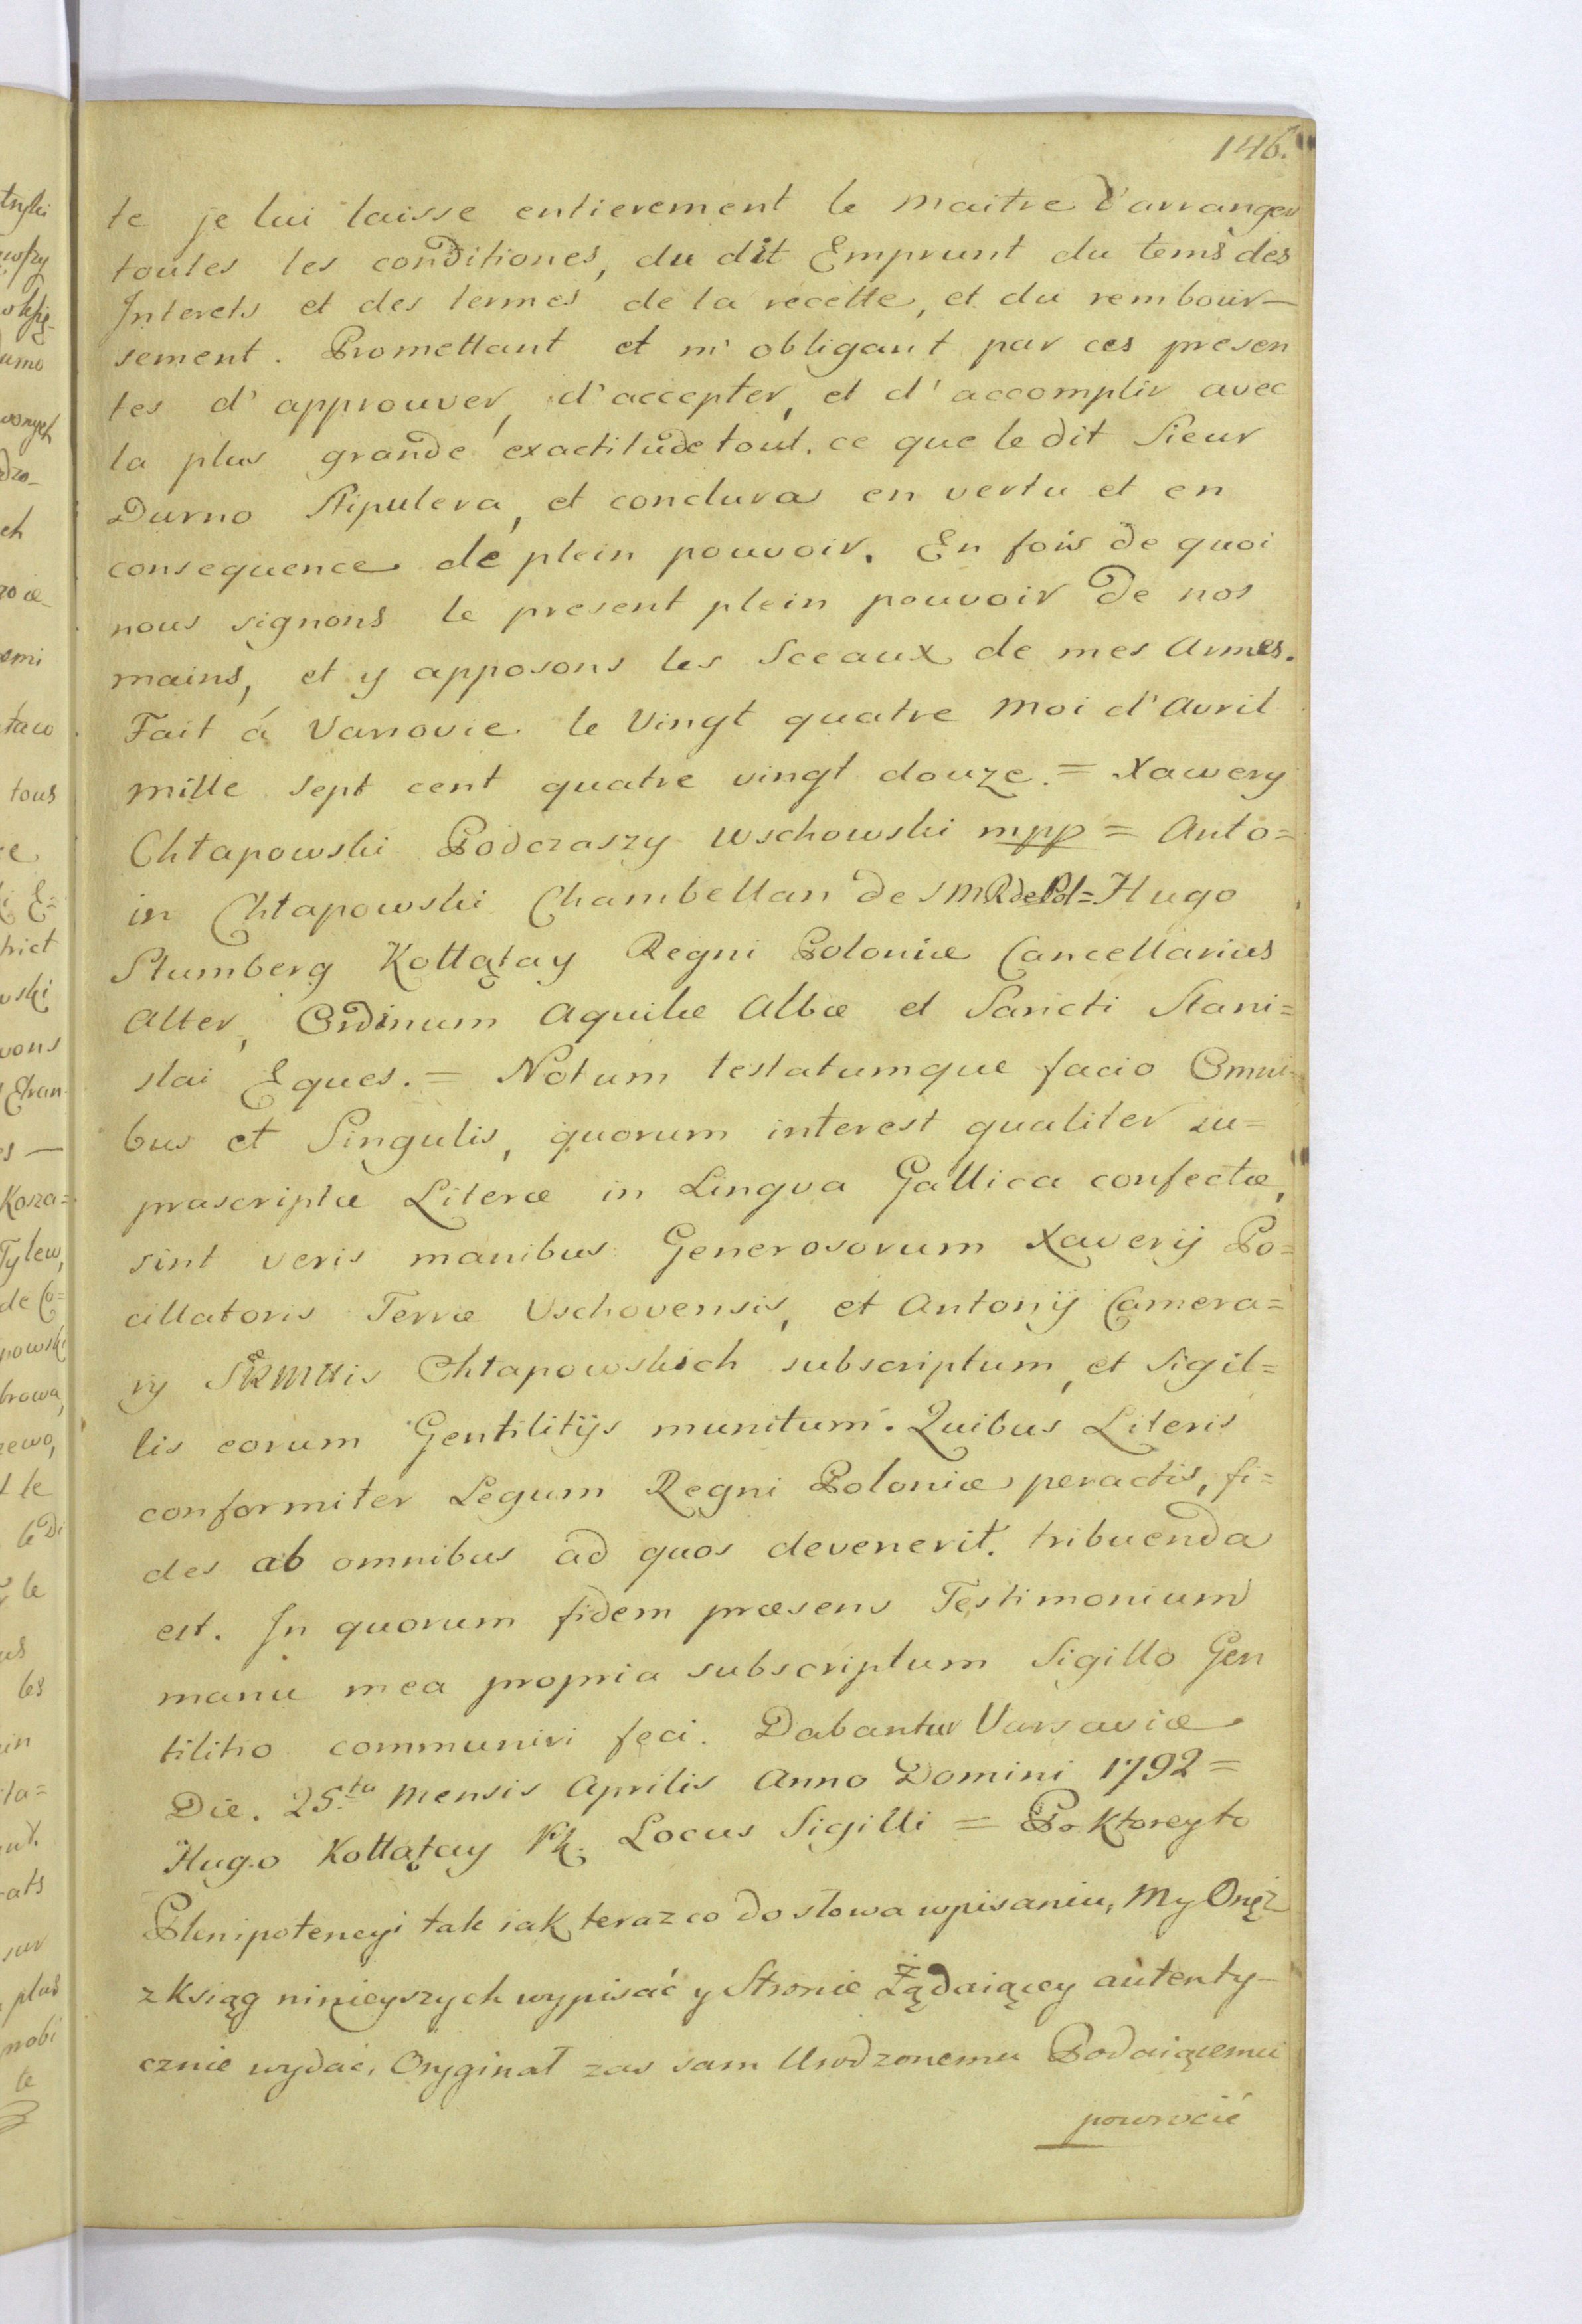 146.
te je lui laisse entierement le maitre d'arranger
toutes les conditiones, du dit Emprunt du tems des
Interets et des termes de la recette, et du rembour-
sement. Promettant et m'obligant par ces presen
tes d'approuver, d'accepter, et d'accomplir avec
la plus grande exactitude tout ce que le dit Sieur
Durno Stipulera, et conclura en vertu et en
consequence de plein pouvoir. En fois de quoi
nous signons le present plein pouvoir de nos
mains, et y apposons les Sceaux de mes Armes.
Fait á Varsovie le Vingt quatre Moi d'Avril
mille sept cent quatre vingt douze. = Xawery
Chłapowski Podczaszy Wschowski mpp = Anto=
in Chłapowski Chambellan de SMRdePol= Hugo
Stumberg Kołłątay Regni Poloniæ Cancellarius
Alter, Ordinum Aquilæ Albæ et Sancti Stani=
slai Eques. = Notum testatumque facio Omni-
bus et Singulis, quorum interest qualiter su=
prascriptæ Literæ in Lingva Gallica confectæ,
sint veris manibus Generosorum Xaverij Po=
cillatoris Terræ Vschovensis, et Antonij Camera=
ry SRMttis Chłapowskich subscriptum, et Sigil=
lis eorum Gentilitijs munitum. Quibus Literis
conformiter Legum Regni Poloniæ peractis, fi=
des ab omnibus ad quos devenerit tribuenda
est. In quorum fidem præsens Testimonium
manu mea propria subscriptum Sigillo Gen
tilitio communiri feci. Dabantur Varsaviæ
Die. 25.ta Mensis Aprilis Anno Domini 1792 =
Hugo Kołłątay PK. Locus Sigilli = Po Ktorey to
Plenipotencyi tak iak teraz co do słowa wpisaniu, My Onęż
z Ksiąg ninieyszych wypisać y Stronie Żądaiącey autenty-
cznie wydać, Oryginał zas sam Urodzonemu Podaiącemu
powrocić